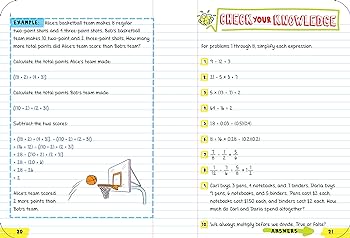 EXAMPLE: Alice's basketball team makes 8 regular
two-point shots and 4 three-point shots. Bob's basketball
team makes 10 two-point and 2 three-point shots. How many
more total points did Alice's team score than Bob's team?
Calculate the total points Alice's team made:
Calculate the total points Bob's team made:
(10 × 2) + (2 × 3)
Subtract the two scores:
= 28 - (20 + 6)
= 28 - 26
= 2
Alice's team scored
2 more points than
Bob's team.
20
CHECK YOUR KNOWLEDGE
For problems 1 through 8, simplify each expression.
1 9 - 12 + 3
2 21 - 5 × 3 + 1
3 5 × (13 - 7) + 2
4 64 ÷ 16 + 2
5
6
7
8
9 Carl buys 3 pens, 4 notebooks, and 7 binders. Darla buys
9 pens, 6 notebooks, and 5 binders. Pens cost $2 each,
notebooks cost $1.50 each, and binders cost $2 each. How
much do Carl and Darla spend altogether?
10 We always multiply before we divide. True or False?
ANSWERS
21